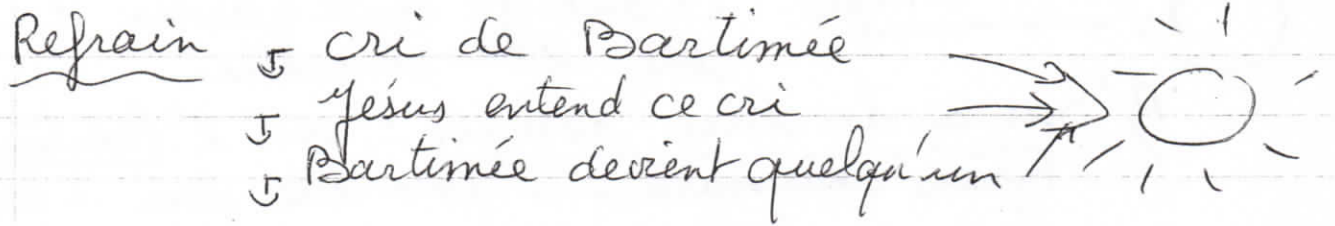 Refrain ↓ cri de Bartimée
↓ Jésus entend ce cri
↓ Bartimée devient quelqu'un